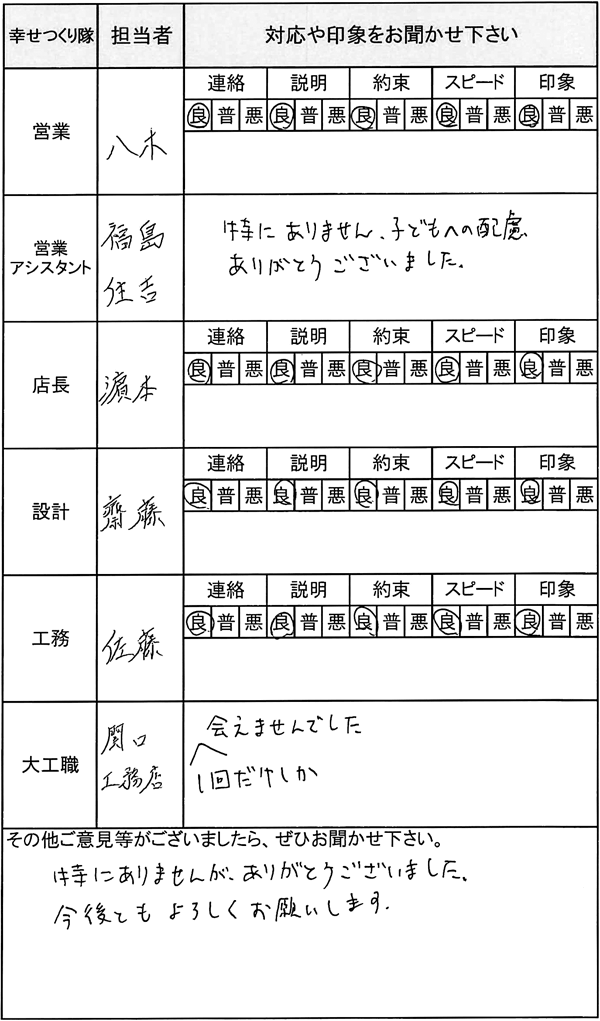 幸せつくり隊 担当者 対応や印象をお聞かせ下さい
営業 八木
連絡 説明 約束 スピード 印象
良 普 悪 良 普 悪 良 普 悪 良 普 悪 良 普 悪
営業
アシスタント
福島
住吉
特にありません、子どもへの配慮
ありがとうございました。
店長 濵本
連絡 説明 約束 スピード 印象
良 普 悪 良 普 悪 良 普 悪 良 普 悪 良 普 悪
設計 齋藤
連絡 説明 約束 スピード 印象
良 普 悪 良 普 悪 良 普 悪 良 普 悪 良 普 悪
工務 佐藤
連絡 説明 約束 スピード 印象
良 普 悪 良 普 悪 良 普 悪 良 普 悪 良 普 悪
大工職
関口
工務店
会えませんでした
1回だけしか
その他ご意見等がございましたら、ぜひお聞かせ下さい。
特にありませんが、ありがとうございました。
今後ともよろしくお願いします。